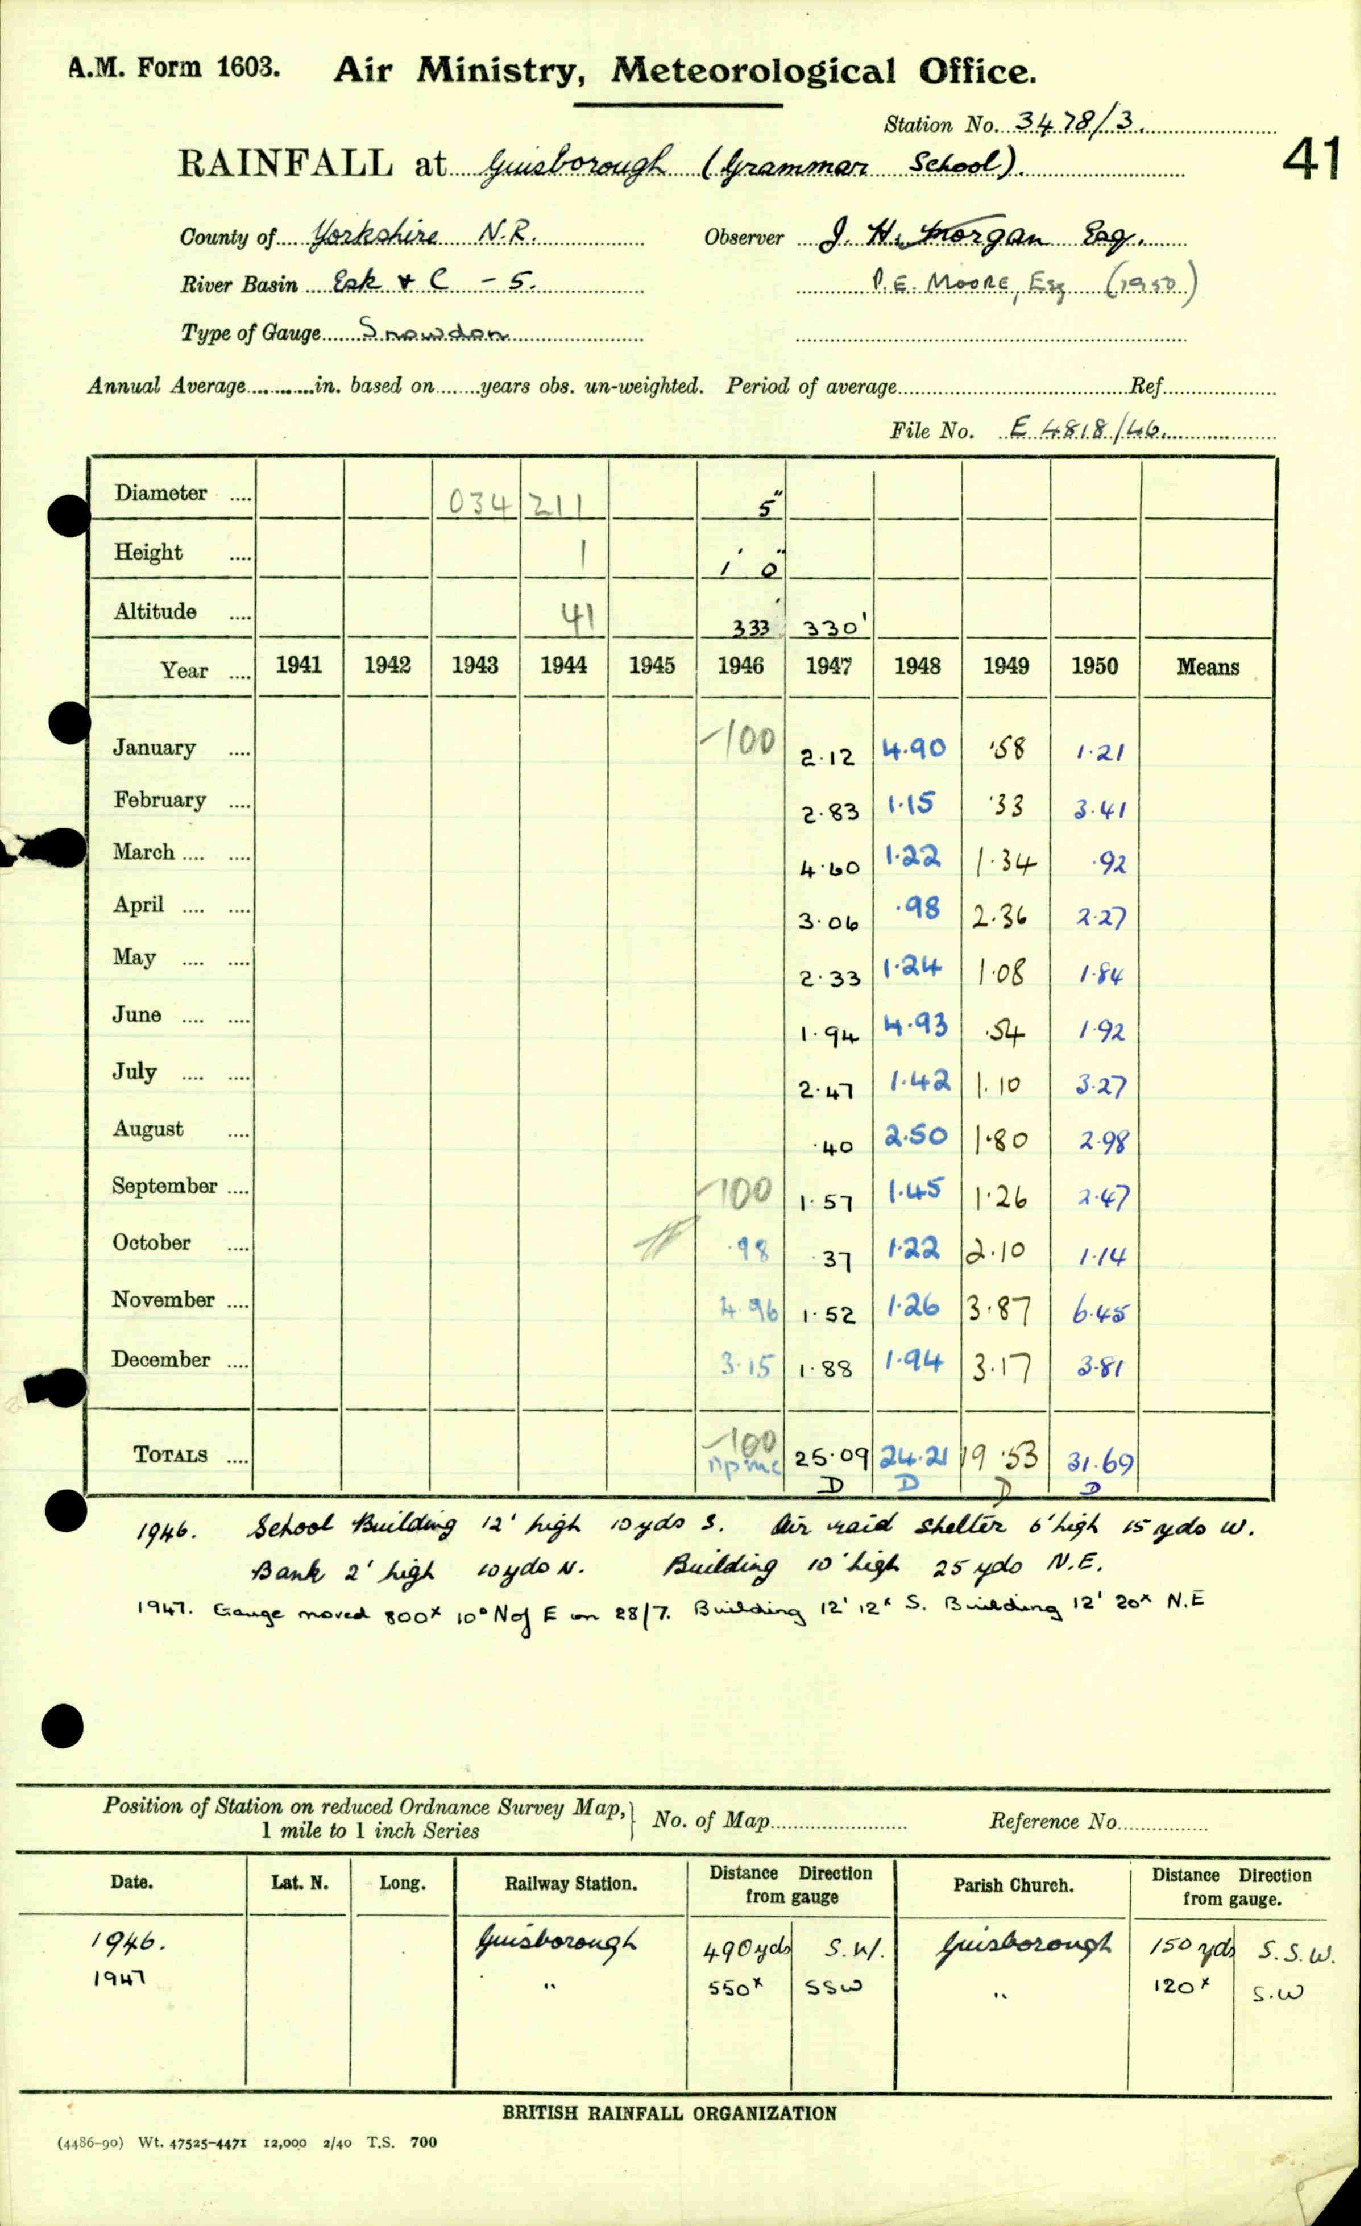 A.M. Form 1603. Air Ministry, Meteorological Office.
Station No. 3478/3.
RAINFALL at Guisborough (Grammar School). 41
County of Yorkshire N.R. Observer J. H. Morgan Esq.
River Basin Esk & C - 5. P.E. MOORE, Esq (1950)
Type of Gauge Snowdon
Annual Average in. based on years obs. un-weighted. Period of average Ref
File No. E 4818/46.
Diameter .... 034 211 5"
Height .... 1 1' 0"
Altitude .... 41 333' 330'
Year .... 1941 1942 1943 1944 1945 1946 1947 1948 1949 1950 Means
January .... -100 2.12 4.90 .58 1.21
February .... 2.83 1.15 .33 3.41
March .... .... 4.60 1.22 1.34 .92
April .... .... 3.06 .98 2.36 2.27
May .... .... 2.33 1.24 1.08 1.84
June .... .... 1.94 4.93 .54 1.92
July .... .... 2.47 1.42 1.10 3.27
August .... .40 2.50 1.80 2.98
September .... -100 1.57 1.45 1.26 2.47
October .... .98 .37 1.22 2.10 1.14
November .... 4.96 1.52 1.26 3.87 6.45
December .... 3.15 1.88 1.94 3.17 3.81
TOTALS .... -100 25.09 24.21 19.53 31.69
D D D D
1946. School Building 12' high 10 yds S. Air raid shelter 6' high 15 yds W.
Bank 2' high 10 yds N. Building 10' high 25 yds N.E.
1947. Gauge moved 800x 10° N of E on 28/7. Building 12' 12x S. Building 12' 20x N.E
Position of Station on reduced Ordnance Survey Map, 1 mile to 1 inch Series } No. of Map Reference No.
Date. Lat. N. Long. Railway Station. Distance Direction from gauge Parish Church. Distance Direction from gauge.
1946. Guisborough 490 yds S.W. Guisborough 150 yds S.S.W.
1947 " 550x SSW " 120x S.W
BRITISH RAINFALL ORGANIZATION
(4486-90) Wt. 47525-4471 12,000 2/40 T.S. 700